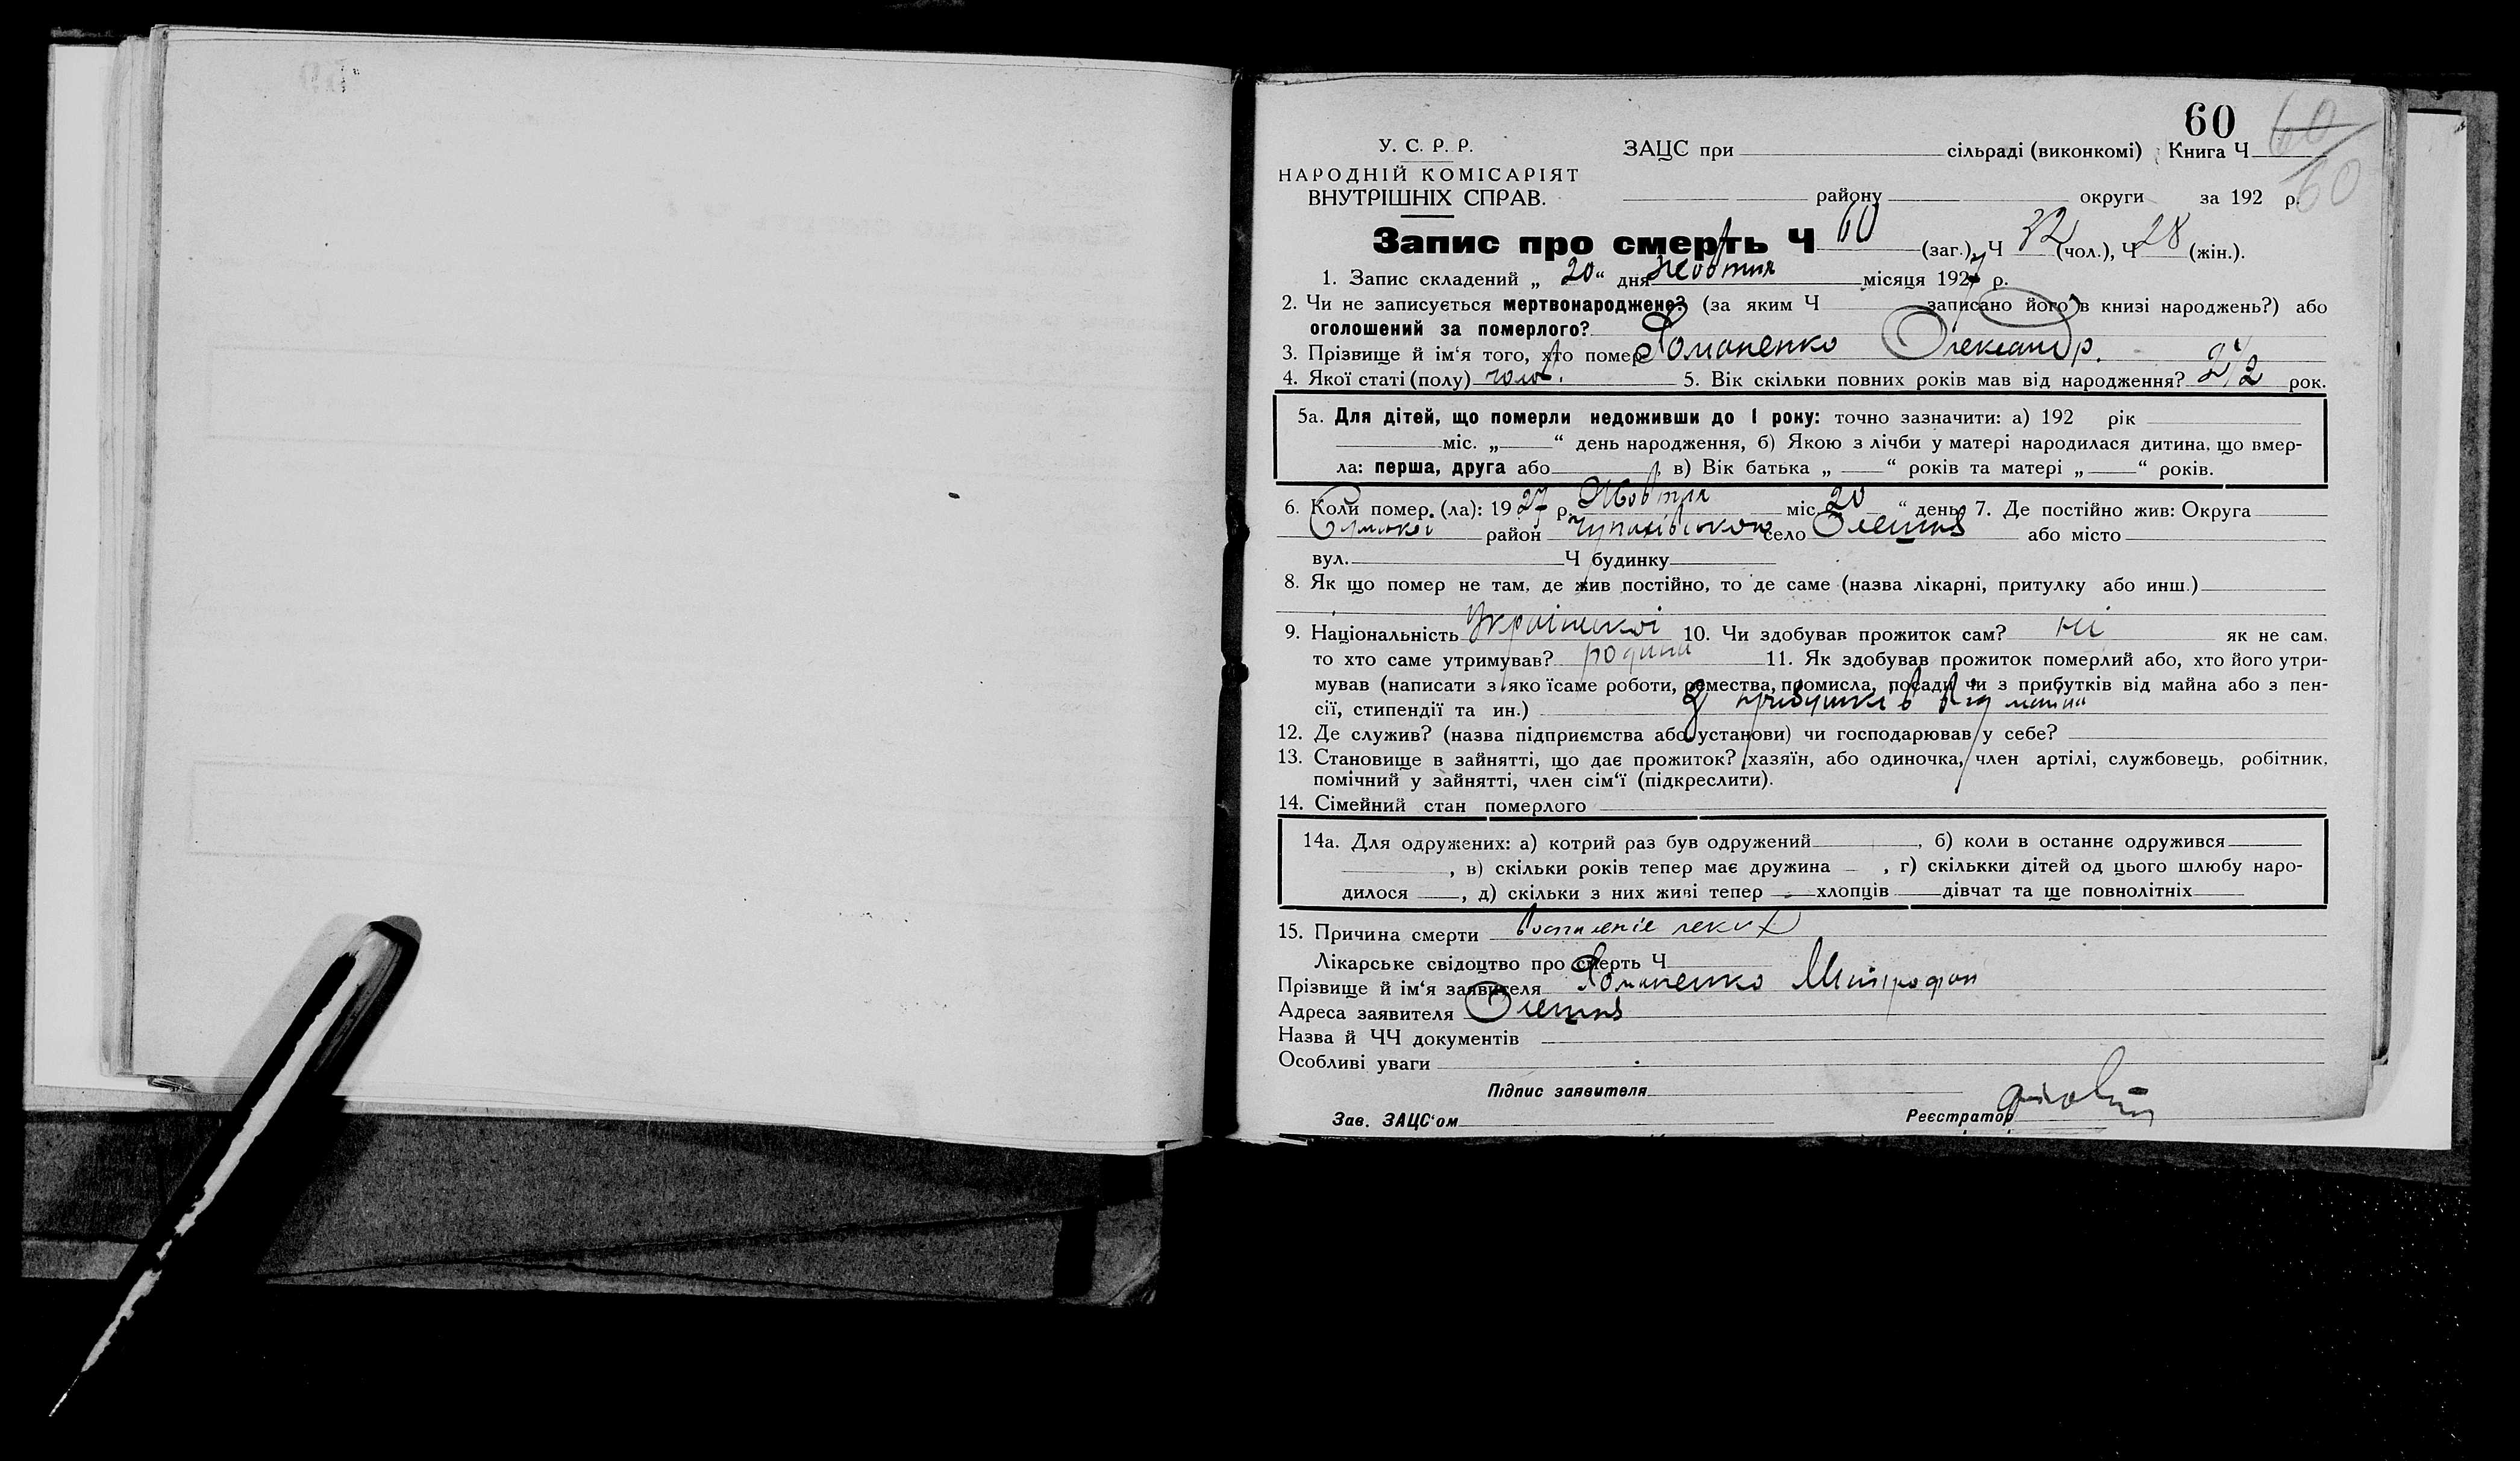 60 60
У. С. Р. Р. ЗАЦС при сільраді (виконкомі) Книга Ч 60
НАРОДНІЙ КОМІСАРІЯТ
ВНУТРІШНІХ СПРАВ. району округи за 192 р.
Запис про смерть Ч 60 (заг.), Ч 32 (чол.), Ч 28 (жін.).
1. Запис складений „ 20 “ дня Жовтня місяця 1927 р.
2. Чи не записується мертвонароджене? (за яким Ч записано його в книзі народжень?) або
оголошений за померлого?
3. Прізвище й ім‘я того, хто помер Романенко Олександр.
4. Якої статі (полу) чолов. 5. Вік скільки повних років мав від народження? 2 1/2 рок.
5а. Для дітей, що померли недоживши до 1 року: точно зазначити: а) 192 рік
міс. „ “ день народження, б) Якою з лічби у матері народилася дитина, що вмер-
ла: перша, друга або , в) Вік батька „ “ років та матері „ “ років.
6. Коли помер. (ла): 19 27 р. Жовтня міс. 20 “ день 7. Де постійно жив: Округа
Сумської район Чупахівського село Олешня або місто
вул. Ч будинку
8. Як що помер не там, де жив постійно, то де саме (назва лікарні, притулку або инш.)
9. Національність Української 10. Чи здобував прожиток сам? ні як не сам,
то хто саме утримував? родина 11. Як здобував прожиток померлий або, хто його утри-
мував (написати з яко їсаме роботи, ремества, промисла, посади чи з прибутків від майна або з пен-
сії, стипендії та ин.) З прибутків від майна
12. Де служив? (назва підприємства або установи) чи господарював у себе?
13. Становище в зайнятті, що дає прожиток? хазяїн, або одиночка, член артілі, службовець, робітник,
помічний у зайнятті, член сім‘ї (підкреслити).
14. Сімейний стан померлого
14а. Для одружених: а) котрий раз був одружений , б) коли в останнє одружився
, в) скільки років тепер має дружина , г) скількки дітей од цього шлюбу наро-
дилося , д) скільки з них живі тепер хлопців дівчат та ще повнолітніх
15. Причина смерти воспаленіе легких
Лікарське свідоцтво про смерть Ч
Прізвище й ім‘я заявителя Романенко Митрофан
Адреса заявителя Олешня
Назва й ЧЧ документів
Особливі уваги
Підпис заявителя
Зав. ЗАЦС‘ом Реєстратор